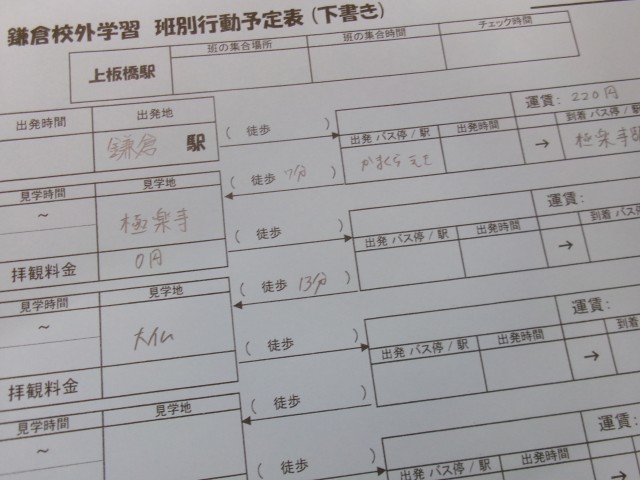 鎌倉校外学習 班別行動予定表 (下書き)
上板橋駅
班の集合場所
班の集合時間
チェック時間
出発時間
出発地
( 徒歩 )
運賃: 220円
鎌倉 駅
出発 バス停 / 駅
出発時間
到着 バス停
( 徒歩 7分 )
かまくら えき
→
極楽寺駅
見学時間
見学地
～
極楽寺
( 徒歩 )
運賃:
出発 バス停 / 駅
出発時間
到着 バス
→
拝観料金
0円
( 徒歩 13分 )
見学時間
見学地
～
大仏
( 徒歩 )
運賃:
出発 バス停 / 駅
出発時間
到着
→
拝観料金
( 徒歩 )
見学時間
見学地
～
( 徒歩 )
運賃:
出発 バス停 / 駅
出発時間